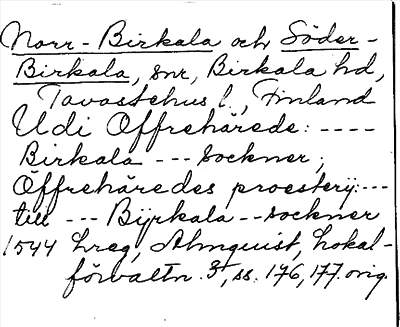 Norr-Birkala och Söder-
Birkala, snr, Birkala hd,
Tavastehus l., Finland
Udi Offrehärede: ----
Birkala --- sockner;
Öffrehäredes proesterij:---
till --- Bÿrkala -- sockner
1544 Lreg, Almquist, Lokal-
förvaltn. 3, ss. 176, 177. orig.